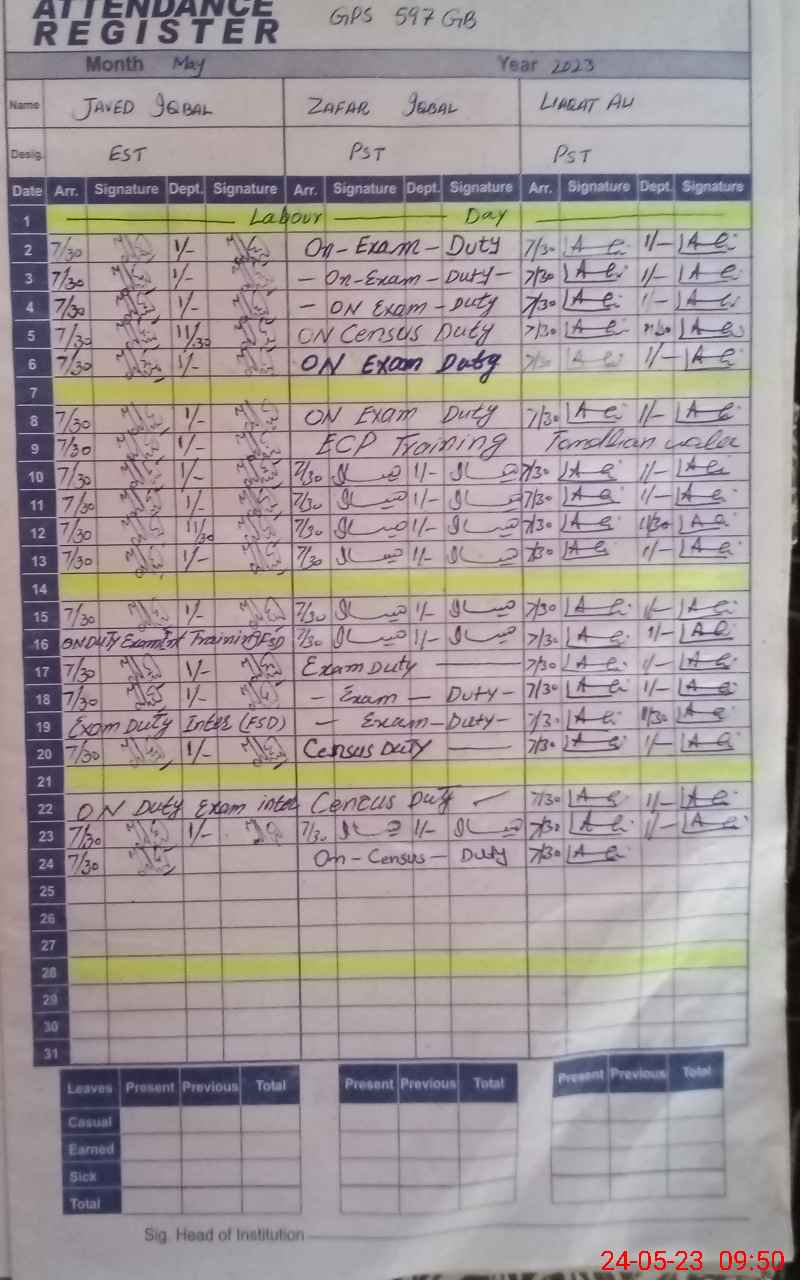 ATTENDANCE
REGISTER GPS 597 GB
Month May Year 2023
Name JAVED IQBAL ZAFAR IQBAL LIAQAT ALI
Desig. EST PST PST
Date Arr. Signature Dept. Signature Arr. Signature Dept. Signature Arr. Signature Dept. Signature
1 Labour Day
2 7/30 1/- On-Exam-Duty 7/30 1/-
3 7/30 1/- - On-Exam-Duty- 7/30 1/-
4 7/30 1/- - ON Exam-Duty 7/30 1/-
5 7/30 11/30 ON Census Duty 7/30 11/30
6 7/30 1/- ON Exam Duty 7/30 1/-
7
8 7/30 1/- ON Exam Duty 7/30 1/-
9 7/30 1/- ECP Training Tandlian wala
10 7/30 1/- 7/30 1/- 7/30 1/-
11 7/30 1/- 7/30 1/- 7/30 1/-
12 7/30 11/30 7/30 1/- 7/30 11/30
13 7/30 1/- 7/30 1/- 7/30 1/-
14
15 7/30 1/- 7/30 1/- 7/30 1/-
16 ON DUTY Exam Training (FSD) 7/30 1/- 7/30 1/-
17 7/30 1/- Exam Duty 7/30 1/-
18 7/30 1/- - Exam - Duty- 7/30 1/-
19 Exam Duty Inter (FSD) - Exam-Duty- 7/30 11/30
20 7/30 1/- Census Duty 7/30 1/-
21
22 ON Duty Exam inter Cencus Duty 7/30 1/-
23 7/30 1/- 7/30 1/- 7/30 1/-
24 7/30 On-Census-Duty 7/30
25
26
27
28
29
30
31
Leaves Present Previous Total Present Previous Total Present Previous Total
Casual
Earned
Sick
Total
Sig. Head of Institution
24-05-23 09:50